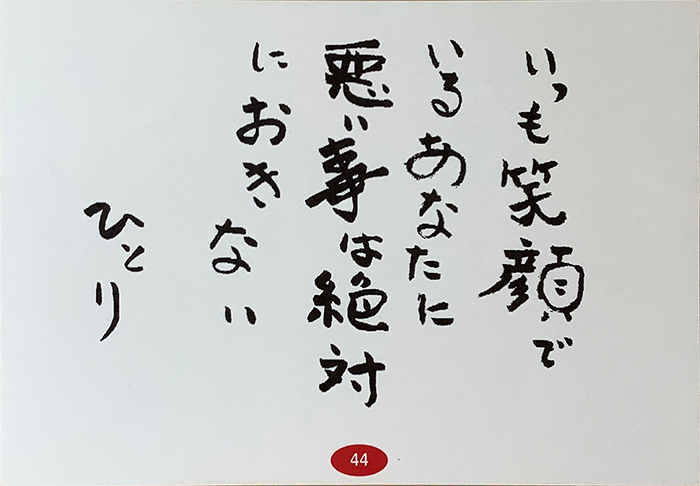 いつも笑顔で
いるあなたに
悪い事は絶対
におきない
ひとり
44